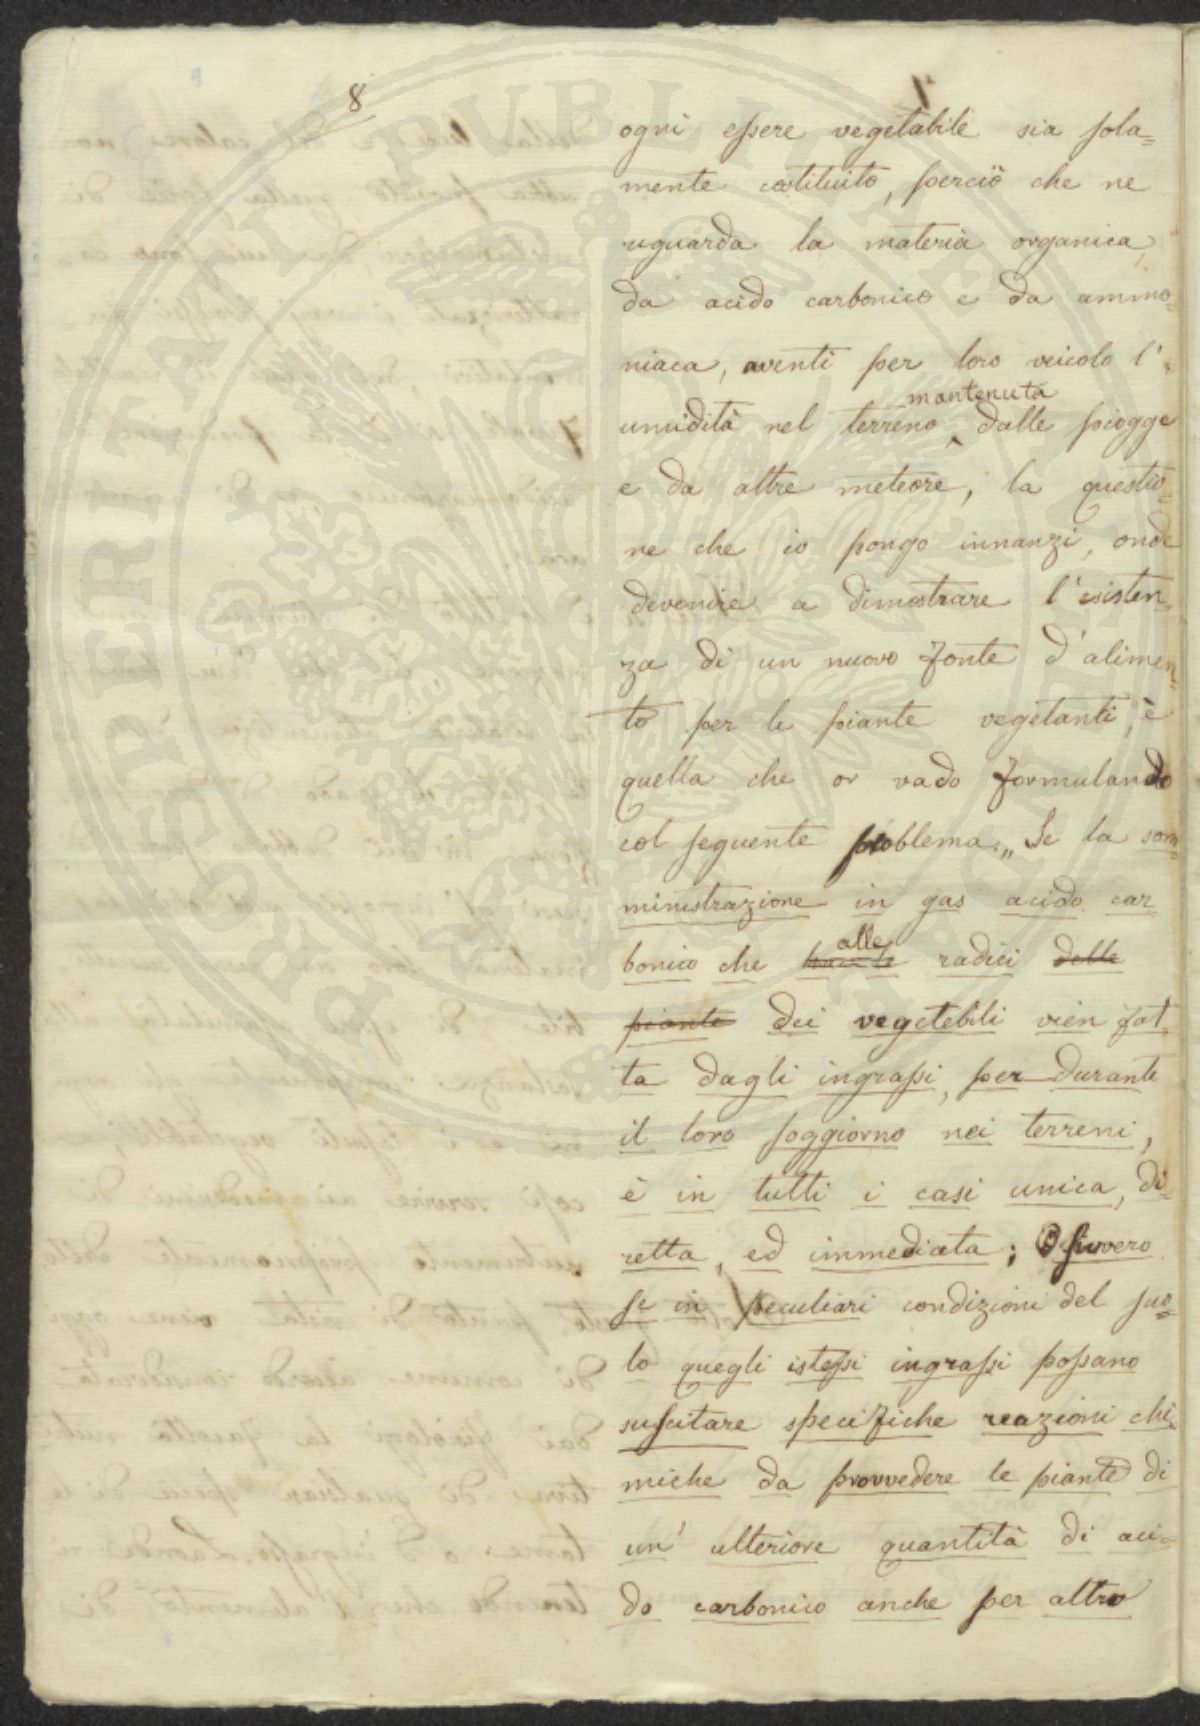 8
ogni essere vegetabile sia sola=
mente costituito, perciò che ne
riguarda la materia organica,
da acido carbonico e da ammo=
niaca, aventi per loro veicolo l'
mantenuta
umidità nel terreno ‸ dalle piogge
e da altre meteore, la questio=
ne che io pongo innanzi, onde
devenire a dimostrare l'esisten=
za di un nuovo fonte d'alimen=
to per le piante vegetanti, è
quella che or vado formulando
col seguente problema: „ Se la som=
ministrazione in gas acido car=
alle
bonico che radici delle
piante dei vegetebili vien fat=
ta dagli ingrassi, per durante
il loro soggiorno nei terreni,
è in tutti i casi unica, di=
retta, ed immediata; O sivvero
se in peculiari condizioni del suo=
lo quegli istessi ingrassi possano
suscitare specifiche reazioni chi=
miche da provvedere le piante di
un' ulteriore quantità di aci=
do carbonico anche per altro
PROSPERITATI PUBLICAE AUGENDAE